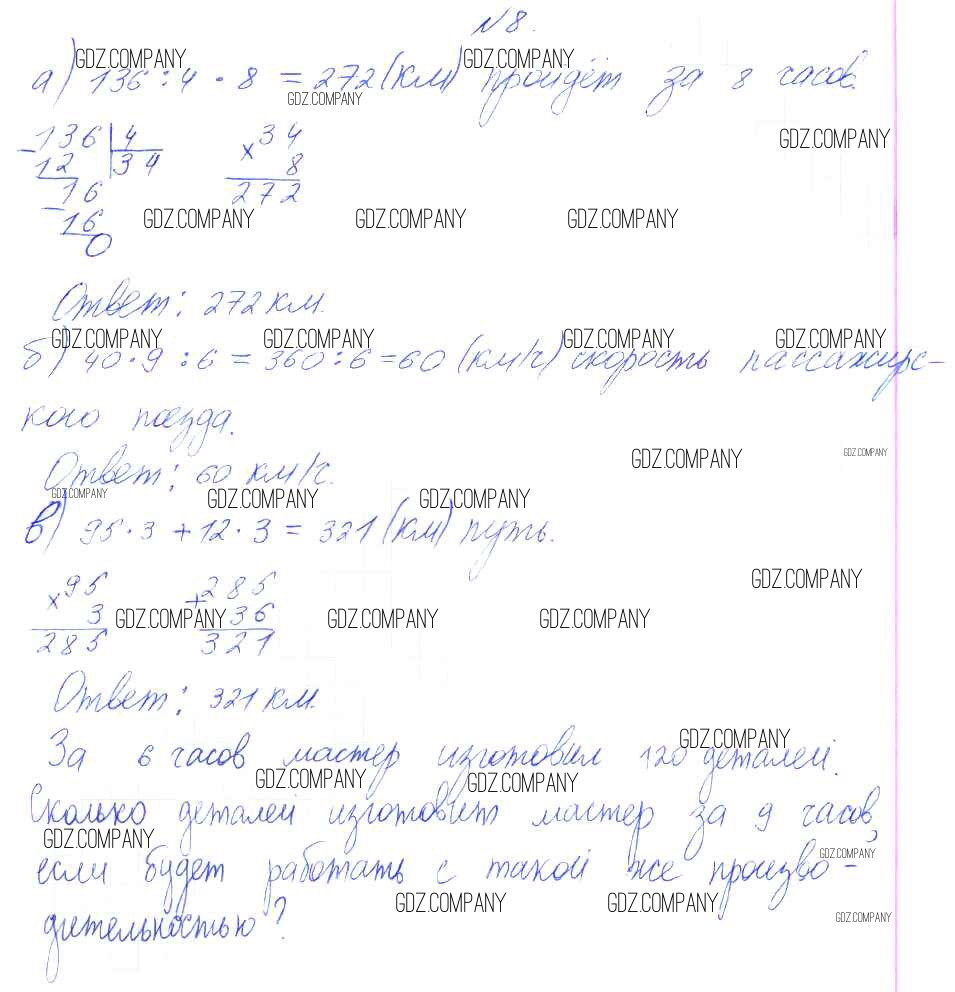 N8.
GDZ.COMPANY GDZ.COMPANY
а) 136 : 4 · 8 = 272 (км) пройдёт за 8 часов.
GDZ.COMPANY
GDZ.COMPANY
-136 | 4
12 34
-16
16
0
×34
8
272
GDZ.COMPANY GDZ.COMPANY GDZ.COMPANY
Ответ: 272 км.
GDZ.COMPANY GDZ.COMPANY GDZ.COMPANY GDZ.COMPANY
б) 40 · 9 : 6 = 360 : 6 = 60 (км/ч) скорость пассажирс-
кого поезда.
GDZ.COMPANY GDZ.COMPANY
Ответ: 60 км/ч.
GDZ.COMPANY GDZ.COMPANY GDZ.COMPANY
в) 95 · 3 + 12 · 3 = 321 (км) путь.
GDZ.COMPANY
×95
3
285
+285
36
321
GDZ.COMPANY GDZ.COMPANY GDZ.COMPANY
Ответ: 321 км.
GDZ.COMPANY
За 6 часов мастер изготовил 120 деталей.
GDZ.COMPANY GDZ.COMPANY
Сколько деталей изготовит мастер за 9 часов,
GDZ.COMPANY GDZ.COMPANY
если будет работать с такой же произво-
GDZ.COMPANY GDZ.COMPANY GDZ.COMPANY
дительностью?